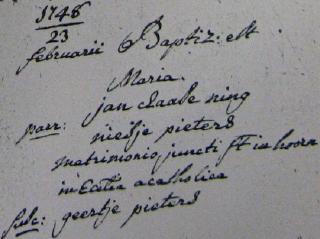 1748
23
februarii Baptiz: est
Maria.
parr: jan claase ning
niesje pieters
matrimonio juncti in hoorn
in Ecclia acatholica
susc: geertje pieters